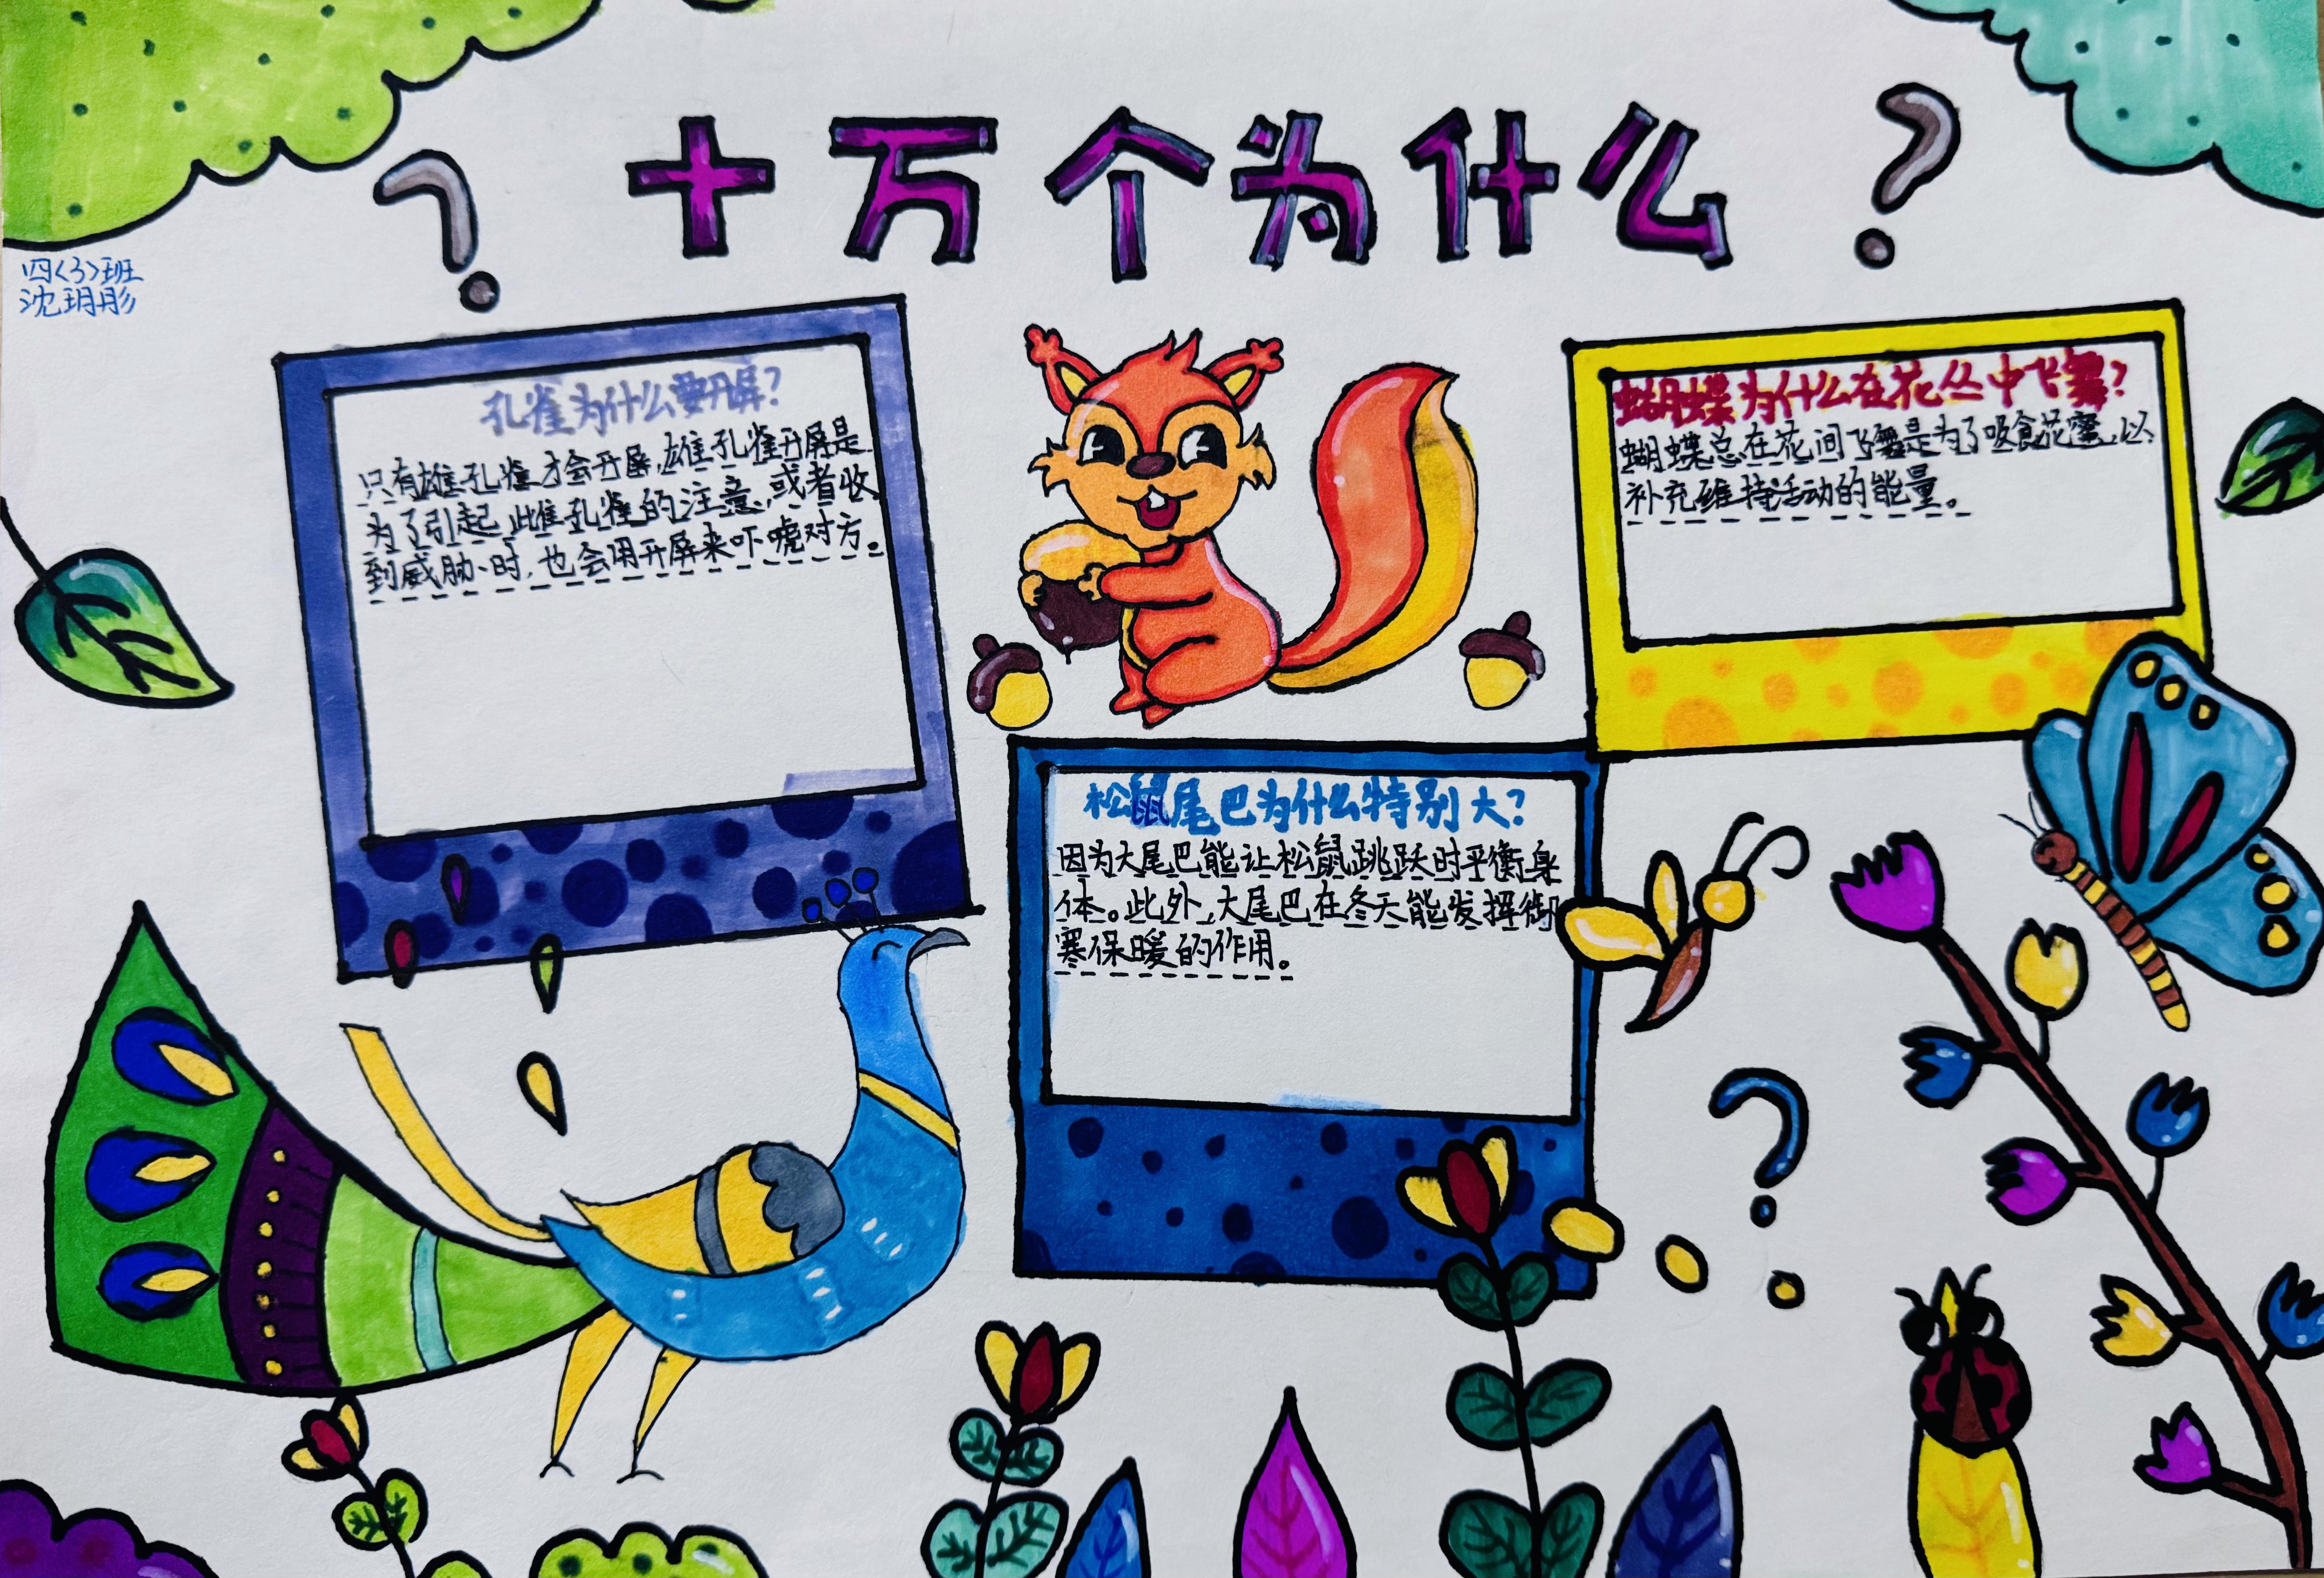 十万个为什么
四(3)班
沈玥彤
孔雀为什么要开屏?
只有雄孔雀才会开屏,雄孔雀开屏是
为了引起雌孔雀的注意,或者收
到威胁时,也会用开屏来吓唬对方。
蝴蝶为什么在花丛中飞舞?
蝴蝶总在花间飞舞是为了吸食花蜜,以
补充维持活动的能量。
松鼠尾巴为什么特别大?
因为大尾巴能让松鼠跳跃时平衡身
体。此外,大尾巴在冬天能发挥御
寒保暖的作用。